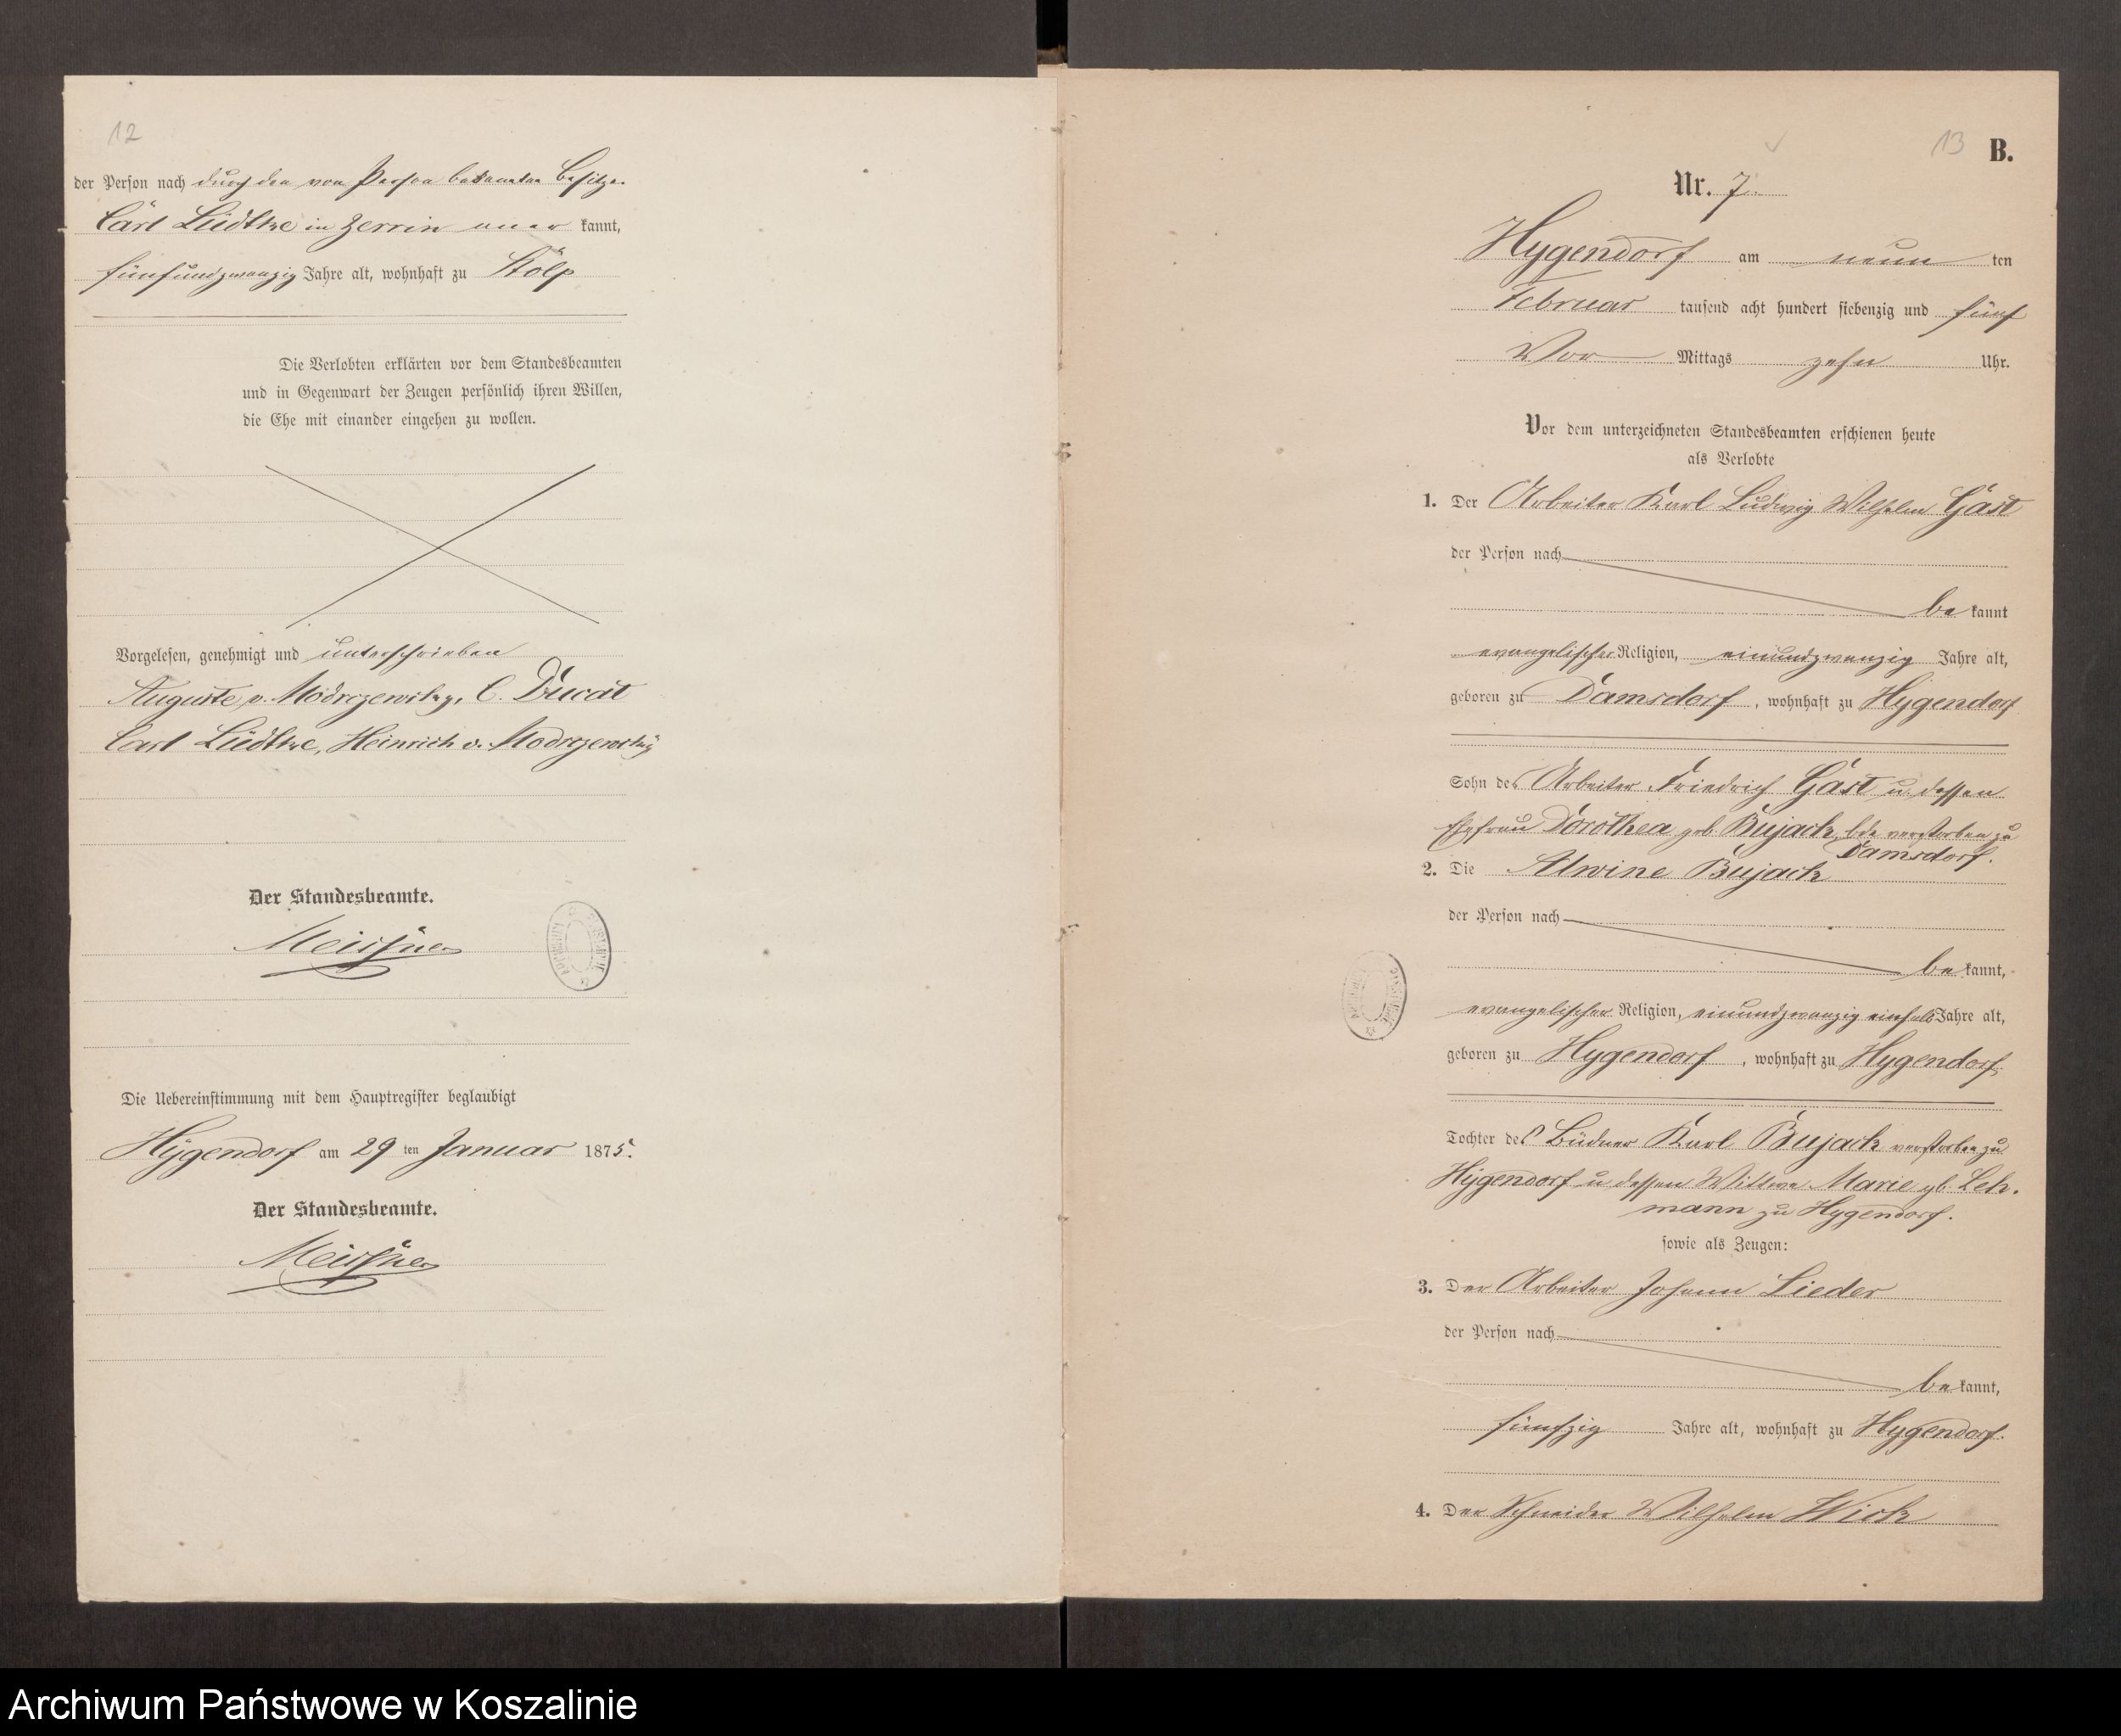 12
der Person nach durch den von Person bekannten Besitzer
Carl Lüdtke in Zerrin aner kannt,
fünfundzwanzig Jahre alt, wohnhaft zu Stolp
Die Verlobten erklärten vor dem Standesbeamten
und in Gegenwart der Zeugen persönlich ihren Willen,
die Ehe mit einander eingehen zu wollen.
Vorgelesen, genehmigt und unterschrieben
Auguste v. Modrzewsky, C. Ducat
Carl Lüdtke, Heinrich v. Modrzewsky
Der Standesbeamte.
Meissner
Die Uebereinstimmung mit dem Hauptregister beglaubigt
Hygendorf am 29 ten Januar 1875.
Der Standesbeamte.
Meissner
13 B.
Nr. 7.
Hygendorf am neun ten
Februar tausend acht hundert siebenzig und fünf
Vor Mittags zehn Uhr.
Vor dem unterzeichneten Standesbeamten erschienen heute
als Verlobte
1. Der Arbeiter Karl Ludwig Wilhelm Gast
der Person nach
be kannt
evangelischer Religion, einundzwanzig Jahre alt,
geboren zu Damsdorf, wohnhaft zu Hygendorf
Sohn des Arbeiter Friedrich Gast u. dessen
Ehefrau Dorothea geb. Bujack, bde verstorben zu
Damsdorf.
2. Die Alwine Bujack
der Person nach
be kannt,
evangelischer Religion, einundzwanzig einhalb Jahre alt,
geboren zu Hygendorf, wohnhaft zu Hygendorf,
Tochter des Büdner Karl Bujack verstorben zu
Hygendorf u dessen Wittwe Marie gb. Leh-
mann zu Hygendorf.
sowie als Zeugen:
3. Der Arbeiter Johann Lieder
der Person nach
be kannt,
fünfzig Jahre alt, wohnhaft zu Hygendorf.
4. Der Schneider Wilhelm Wick
Archiwum Państwowe w Koszalinie